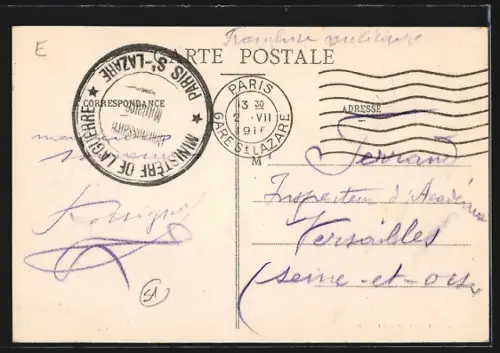 E
Franchise militaire
CARTE POSTALE
MINISTÈRE DE LA GUERRE ★ PARIS St-LAZARE ★
Commissaire
Militaire
PARIS
13 30
2 · VII
1916
GARE St LAZARE
M
CORRESPONDANCE
ADRESSE
Ferrand
Inspecteur d'Académie
Versailles
(Seine-et-Oise
51